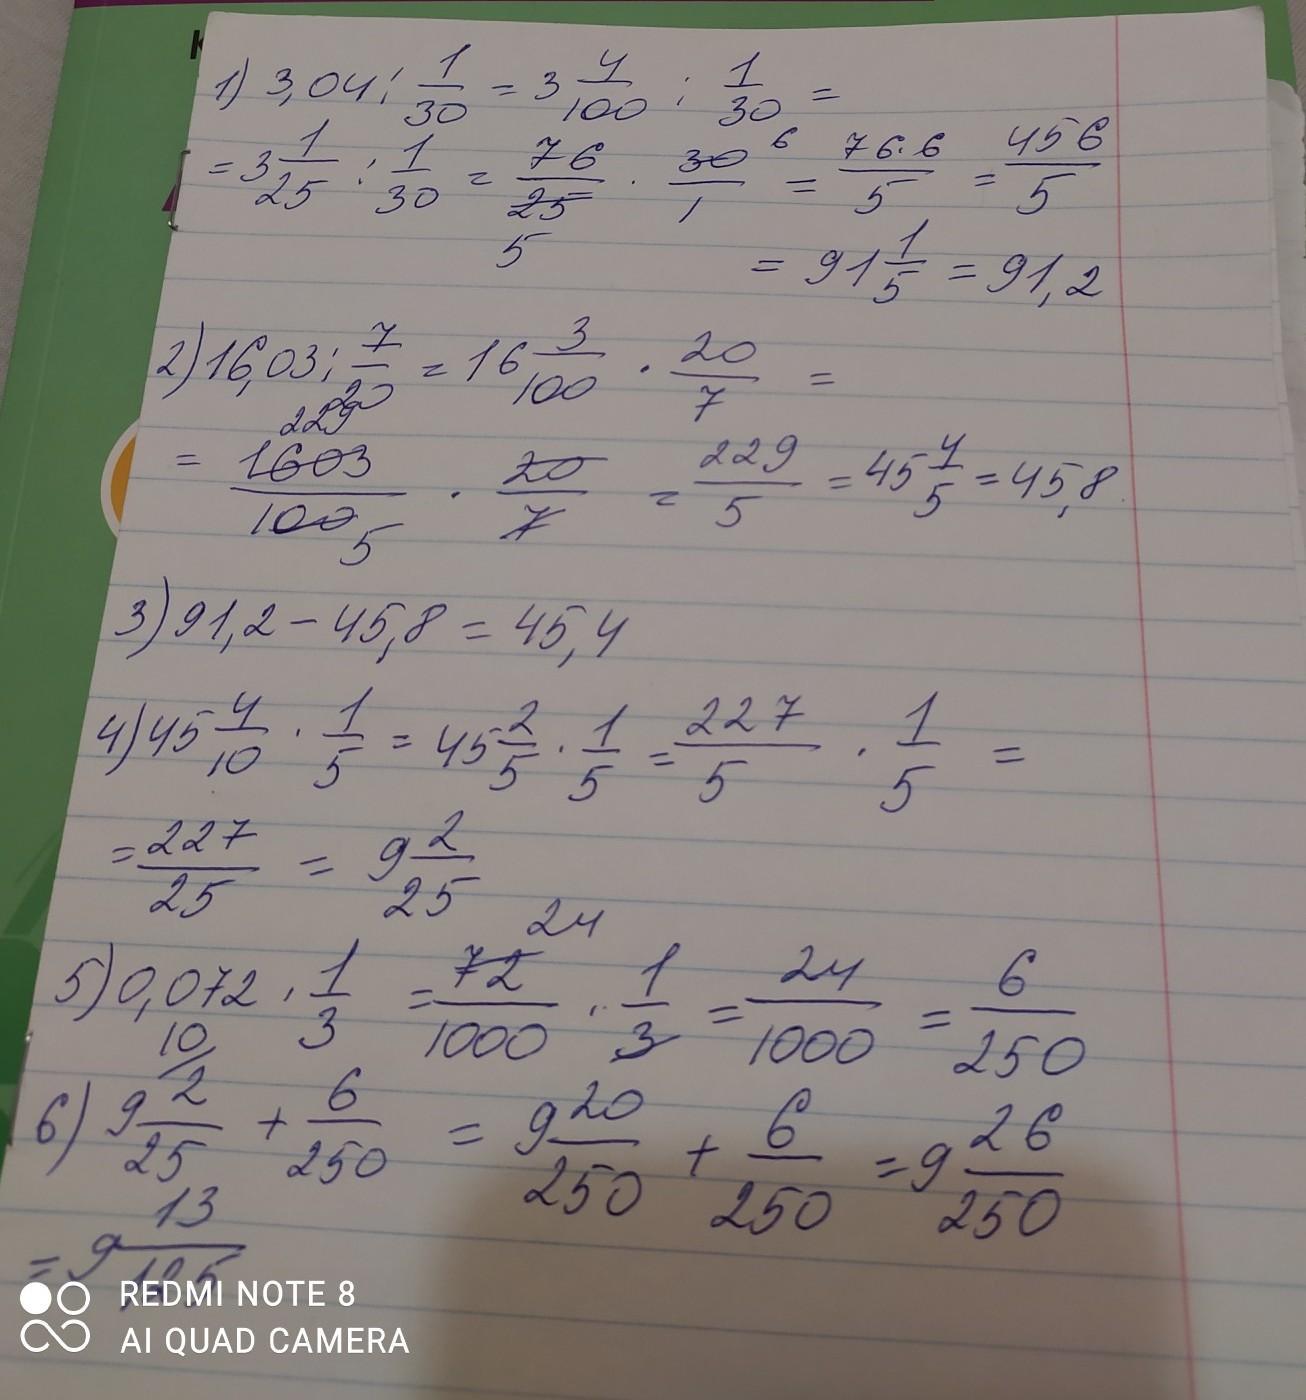 К
1) 3,04 : 1/30 = 3 4/100 : 1/30 =
= 3 1/25 : 1/30 = 76/25 5 · 30/1 6 = 76·6/5 = 456/5
= 91 1/5 = 91,2
2) 16,03 : 7/20 = 16 3/100 · 20/7 =
= 229 1603/100 5 · 20/7 = 229/5 = 45 4/5 = 45,8
3) 91,2 - 45,8 = 45,4
4) 45 4/10 · 1/5 = 45 2/5 · 1/5 = 227/5 · 1/5 =
= 227/25 = 9 2/25
5) 0,072 · 1/3 = 72/1000 24 · 1/3 = 24/1000 = 6/250
6) 9 2/25 10/ + 6/250 = 9 20/250 + 6/250 = 9 26/250
= 9 13/125
REDMI NOTE 8
AI QUAD CAMERA